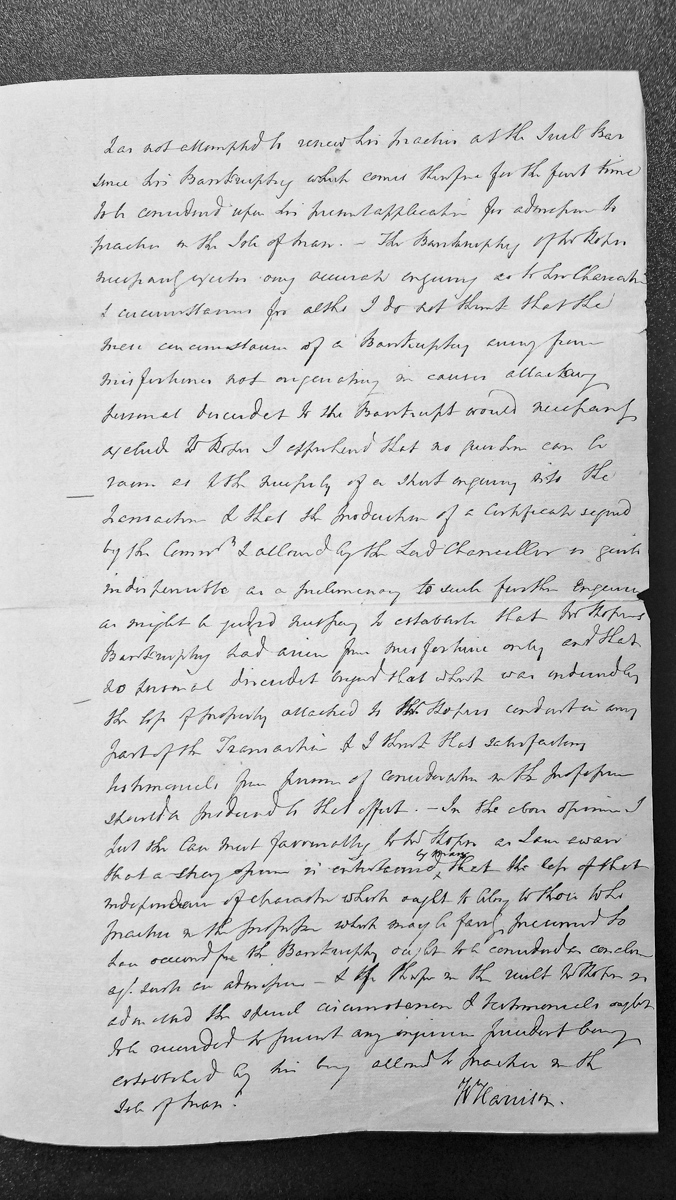 has not attempted to renew his practice at the Bar
since his Bankruptcy which comes therefore for the first time
to be considered upon his present application for admission to
practice in the Isle of Man. – The Bankruptcy of Mr Roper
necessarily any accurate enquiry as to his Character
& circumstances for altho I do not think that the
mere circumstance of a Bankruptcy arising from
misfortunes not originating in causes attaching
personal discredit to the Bankrupt would necessarily
exclude Mr Roper I apprehend that no question can be
raised as to the necessity of a strict enquiry into the
transaction & that the production of a Certificate signed
by the Commrs & allowed by the Lord Chancellor is quite
indispensible as a preliminary to such further Enquiries
as might be judged necessary to establish that Mr Ropers
Bankruptcy had arisen from misfortune only and that
no personal discredit beyond that which was endured by
the loss of property attached to Mr Ropers conduct in any
part of the Transaction & I think that satisfactory
testimonials from persons of consideration in the profession
should be produced to that effect. – In the above opinion I
put the Case most favourably to Mr Roper as I am aware
that a strong opinion is entertained by many that the loss of that
independence of character which ought to belong to those who
practice in the profession which may be fairly presumed to
have occurred from the Bankruptcy ought to be considered as conclusive
agt. such an admission – & if in the result Mr Roper is
admitted the special circumstances & testimonials ought
to be recorded to prevent any injurious precedent being
established by his being allowed to practice in the
Isle of Man.
Wm Harrison.